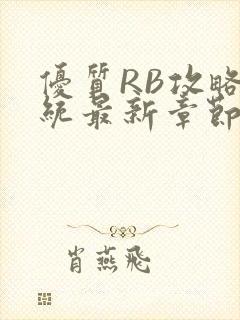 優質RB攻略
統最新章節
肖燕飛